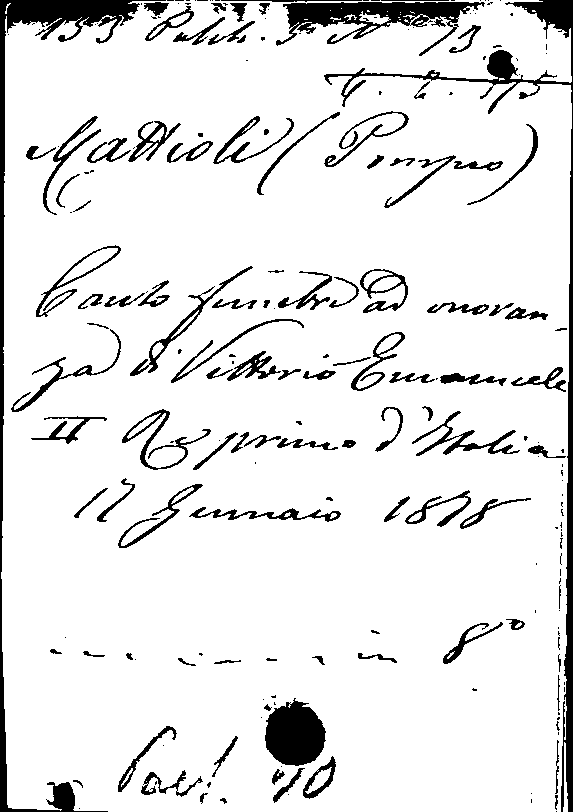 Mattioli (Pompeo)
Canto funebre ad onoran-
za di Vittorio Emanuele
II Re primo d'Italia
17 Gennaio 1878
in 8°